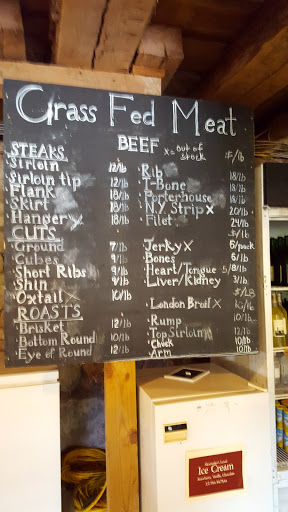 Grass Fed Meat
BEEF x = out of stock $/lb
STEAKS
Sirloin 12/lb
Sirloin tip 12/lb
Flank 18/lb
Skirt 18/lb
Hanger x 18/lb
CUTS
Ground 7/lb
Cubes 9/lb
Short Ribs 9/lb
Shin 9/lb
Oxtail x 10/lb
ROASTS
Brisket 12/lb
Bottom Round 10/lb
Eye of Round 10/lb
Rib 18/lb
T-Bone 18/lb
Porterhouse 18/lb
N.Y. Strip x 20/lb
Filet 24/lb
$/lb
Jerky x 5/pack
Bones 6/lb
Heart/Tongue 5/8/lb
Liver/Kidney 3/lb
$/LB
London Broil x 10/lb
Rump 10/lb
Top Sirloin x 12/lb
Chuck 10/lb
Arm 10/lb
Ice Cream